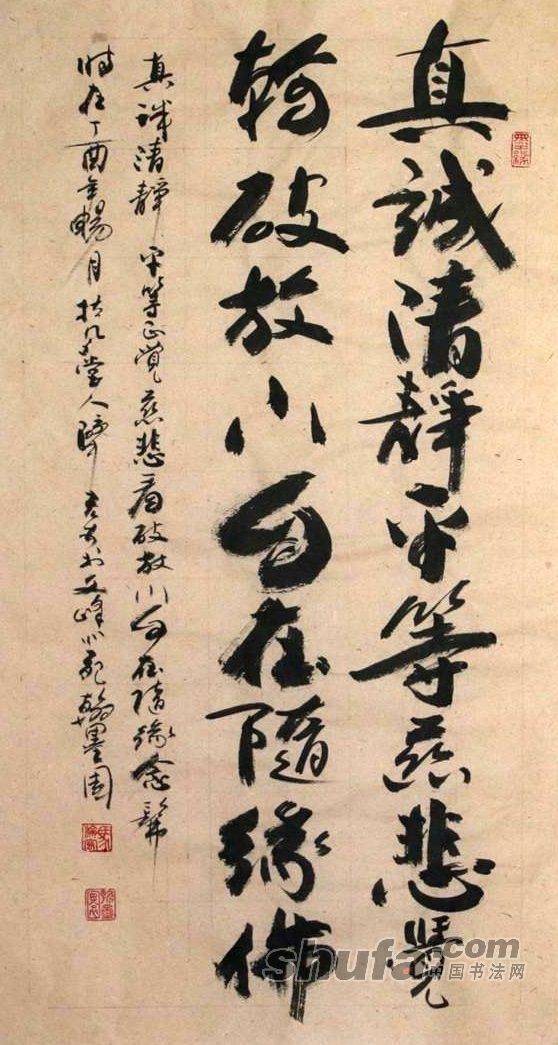 真誠清靜平等慈悲覺
破放下自在隨緣佛
真誠清靜平等正覺慈悲看破放下自在隨緣念
時在丁酉年暢月 堂人 文峰 翰墨園
shufa.com
中国书法网